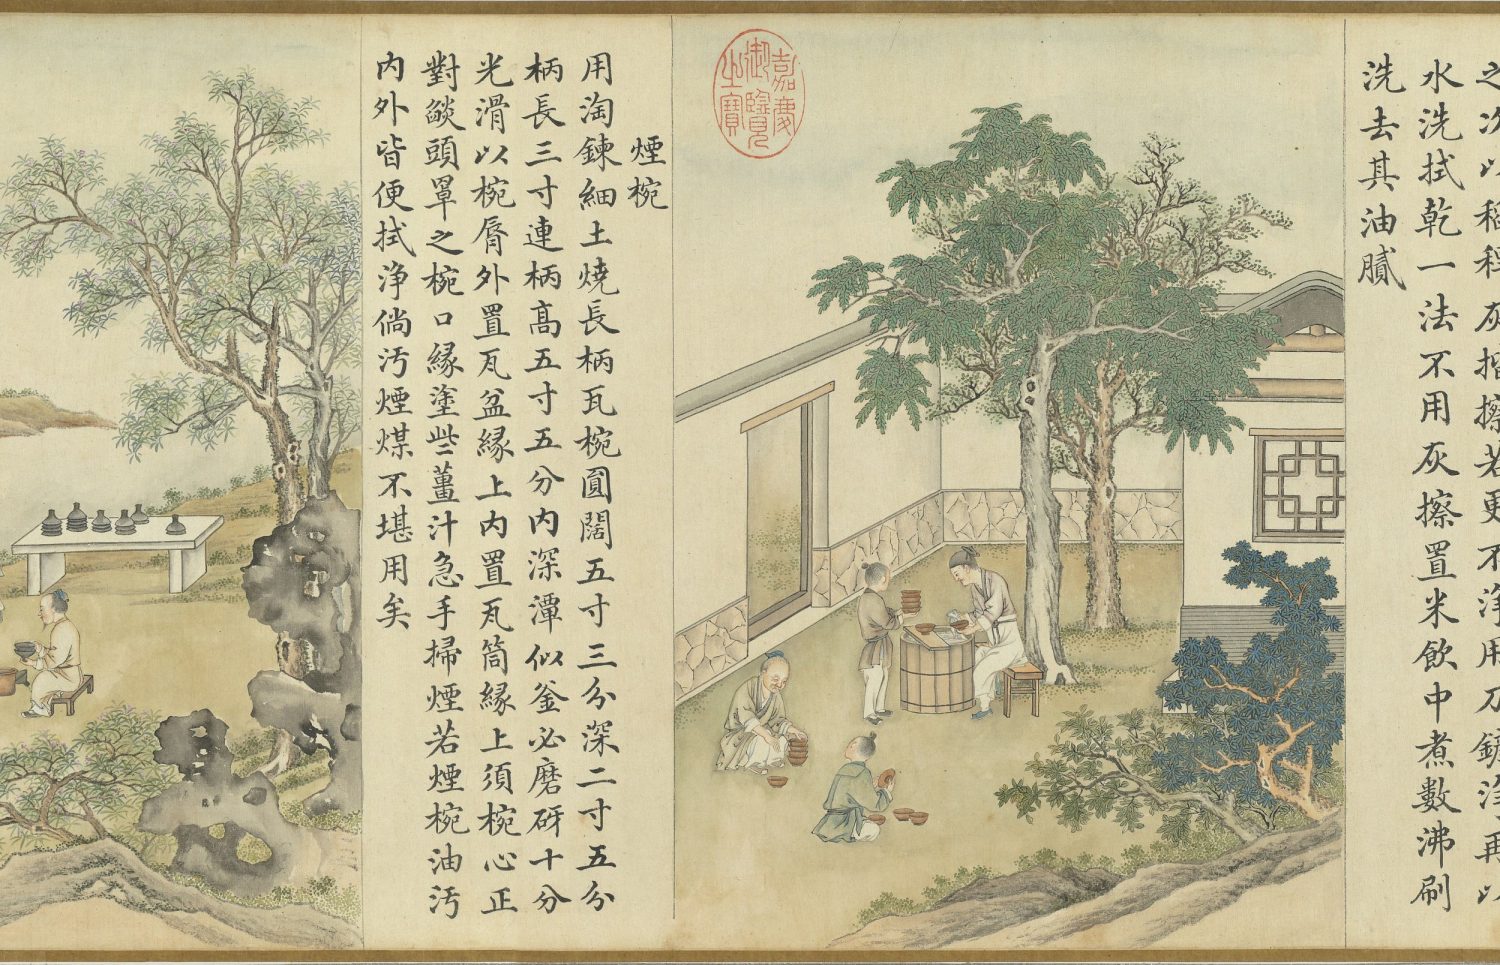 之次以稻稈灰揩擦若更不淨用刀鏟淨再以
水洗拭乾一法不用灰擦置米飲中煮數沸刷
洗去其油膩
嘉慶
御覽
之寶
煙椀
用淘鍊細土燒長柄瓦椀圓闊五寸三分深二寸五分
柄長三寸連柄高五寸五分內深潭似釜必磨砑十分
光滑以椀脣外置瓦盆緣上內置瓦筒緣上須椀心正
對燄頭罩之椀口緣塗些薑汁急手掃煙若煙椀油汚
內外皆便拭淨倘汚煙煤不堪用矣